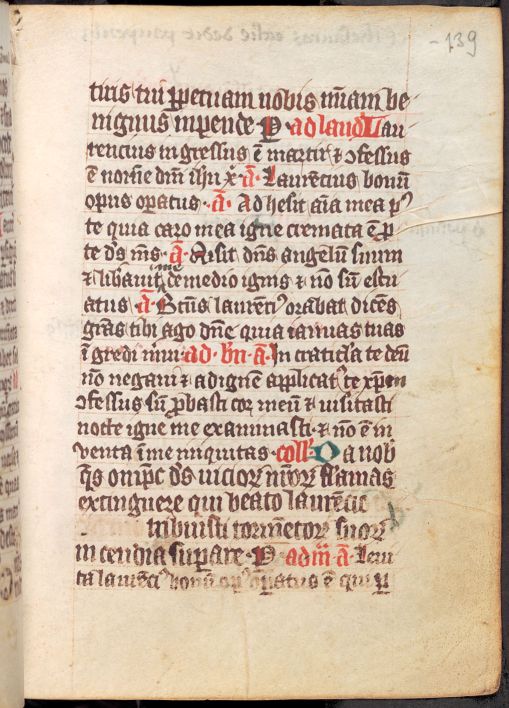 - 139
tiris tui ꝑpetuam nobis mĩam be
nignus inpende P · ad laud Lau
rencius ingressus ẽ martir ⁊ ↄfessus
ẽ nom̃e dñi ihũ x̃ · ã · Laurẽcius bonũ
opus opatus · ã · Adhesit aĩa mea p̾
te quia caro mea igne cremata ẽ ꝓ
te dѕ̃ mѕ̃ · ã · Misit dñs angelũ suum
⁊ libauit me de medio ignis ⁊ nõ sũ estu
atus · ã · Bẽus laurẽci⁹ orabat dicẽs
grãs tibi ago dñe quia ianuas tuas
ĩgredi mrui · ad · bñ · ã · In craticla te deũ
nõ negaui ⁊ ad ignẽ applicat⁹ te xp̃m
ↄfessus sũ ꝓbasti cor meũ ⁊ uisitasti
nocte igne me examinasti · ⁊ nõ ẽ in
uenta ĩ me iniquitas · coll' Da nob̾
q̃s om̃pc̃ dѕ̃ uicioꝝ nr̃oꝝ flamas
extinguere qui beato laurẽcio
tribuisti tormẽtoꝝ suoꝝ
incendia suꝑare · P · ad m̃ ã · Leui
ta laurẽci⁹ bonũ op⁹ opatus ẽ qui ꝑ